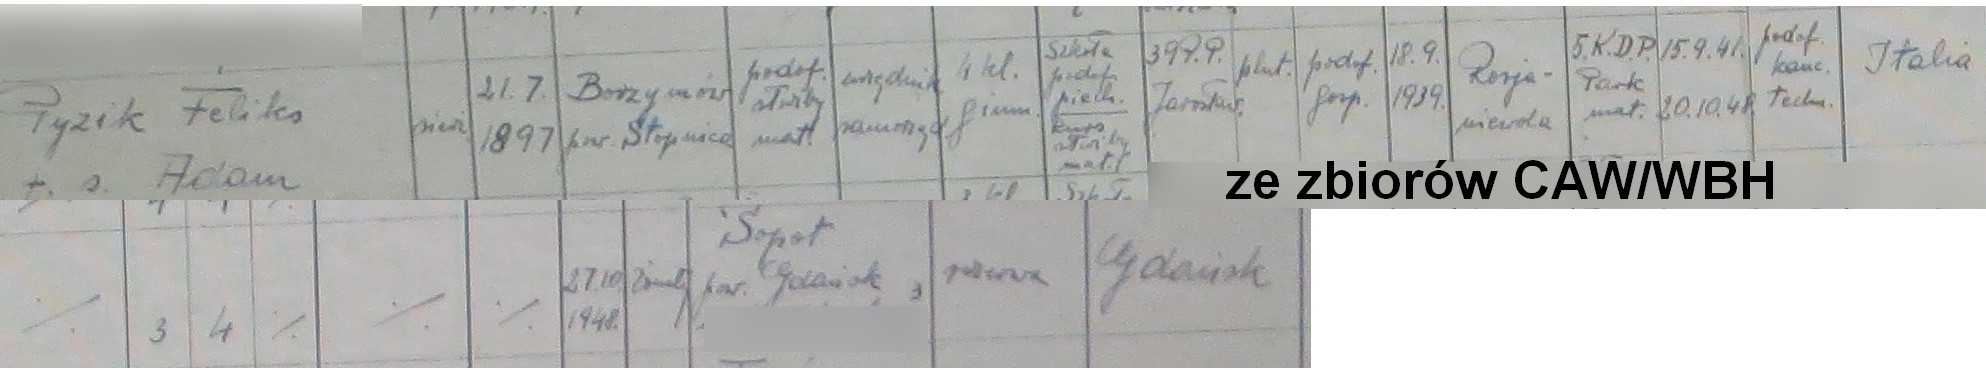 Pyzik Feliks
s. Adam
21.7.
1897
Borzymów
pow. Stopnica
podof.
służby
mat.
urzędnik
samorząd
4 kl.
gimn.
Szkoła
podof.
piech.
kurs
służby
mat.
39 P.P.
Jarosław.
plut.
podof.
gosp.
18.9.
1939.
Rosja-
niewola
5.K.D.P.
Park
mat.
15.9.41.
20.10.48
podof.
kanc.
techn.
Italia
ze zbiorów CAW/WBH
3
4
27.10
1948.
Sopot
pow. Gdańsk
rezerwa
Gdańsk